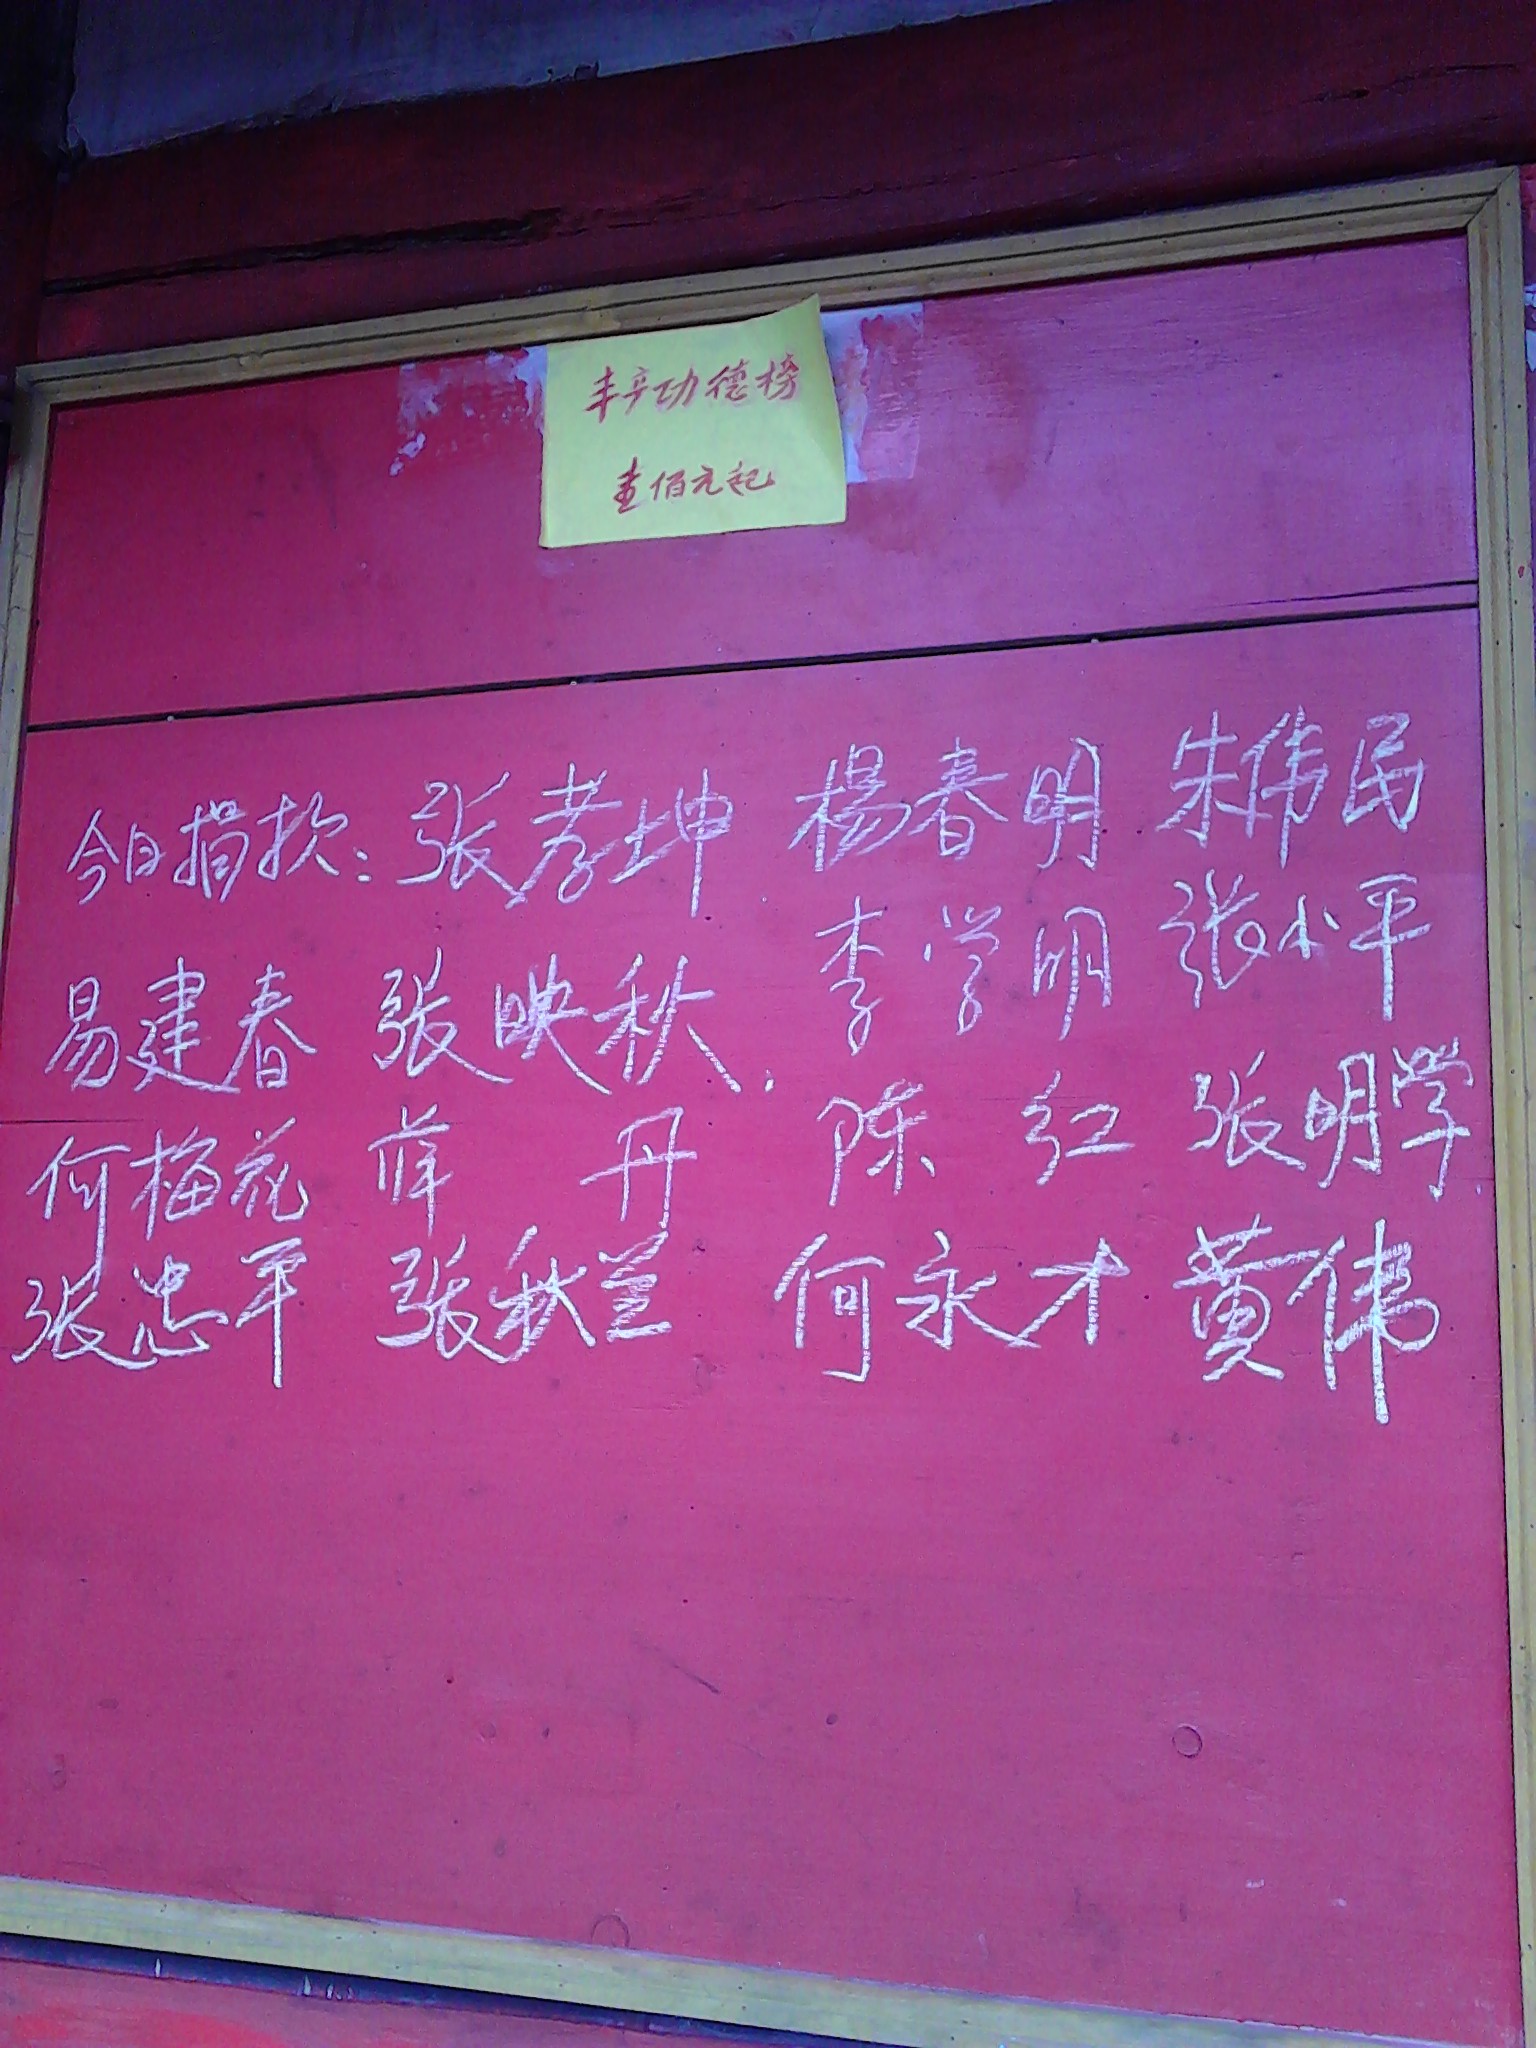 丰彦功德榜
壹佰元起
今日捐款：张孝坤 楊春明 朱伟民
易建春 张映秋. 李学明 张小平
何梅花 薛丹 陈红 张明学
张忠平 张秋兰 何永才 黄伟